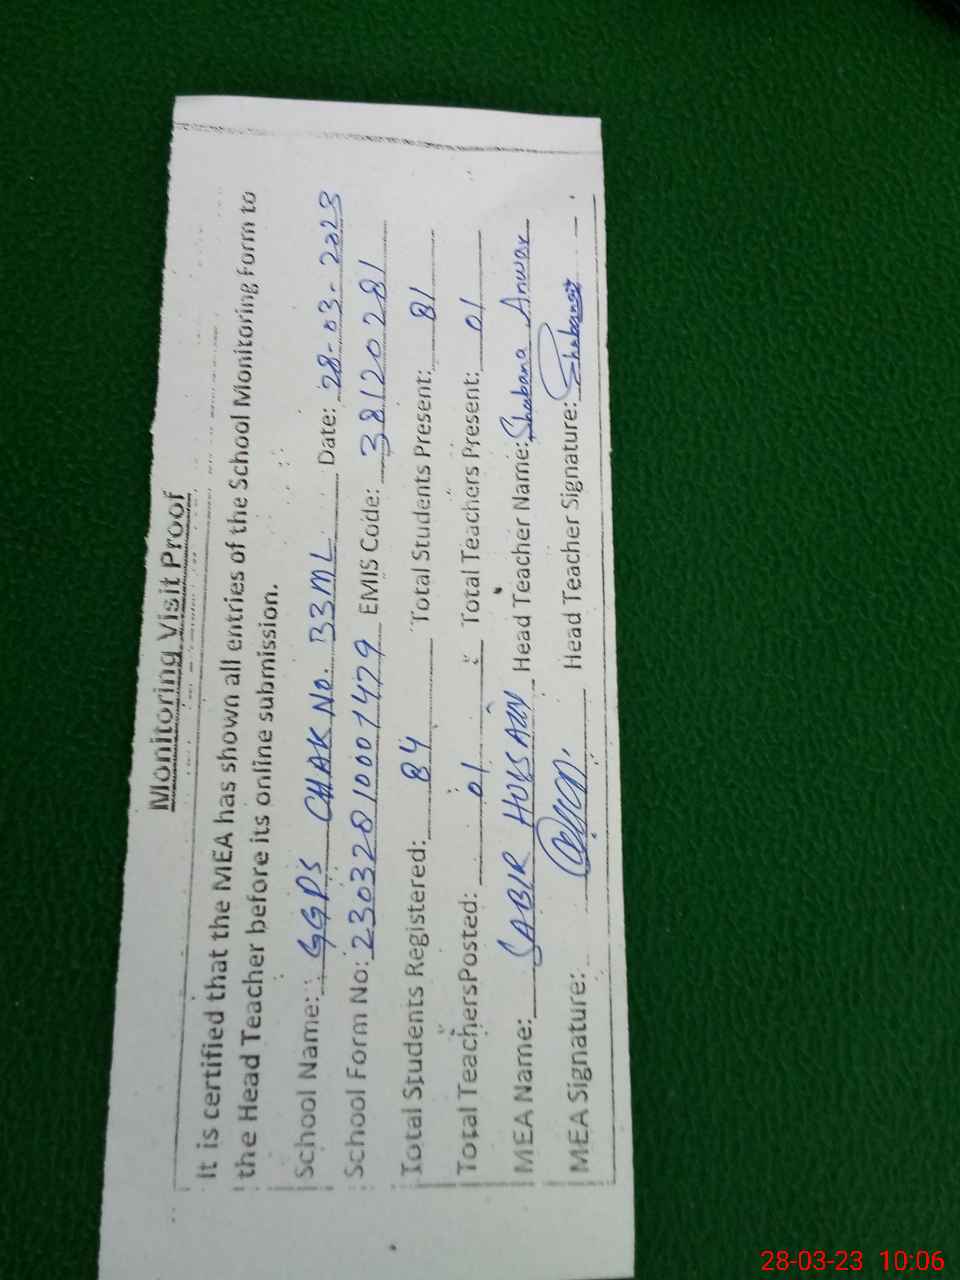 Monitoring Visit Proof
It is certified that the MEA has shown all entries of the School Monitoring Form to
the Head Teacher before its online submission.
School Name: GGPS CHAK NO: 33ML Date: 28-03-2023
School Form No: 23032810007479 EMIS Code: 38120281
Total Students Registered: 84 Total Students Present: 81
Total TeachersPosted: 01 Total Teachers Present: 01
MEA Name: SABIR HUSSAIN Head Teacher Name: Shabana Anwar
MEA Signature: Head Teacher Signature: Shabana
28-03-23 10:06